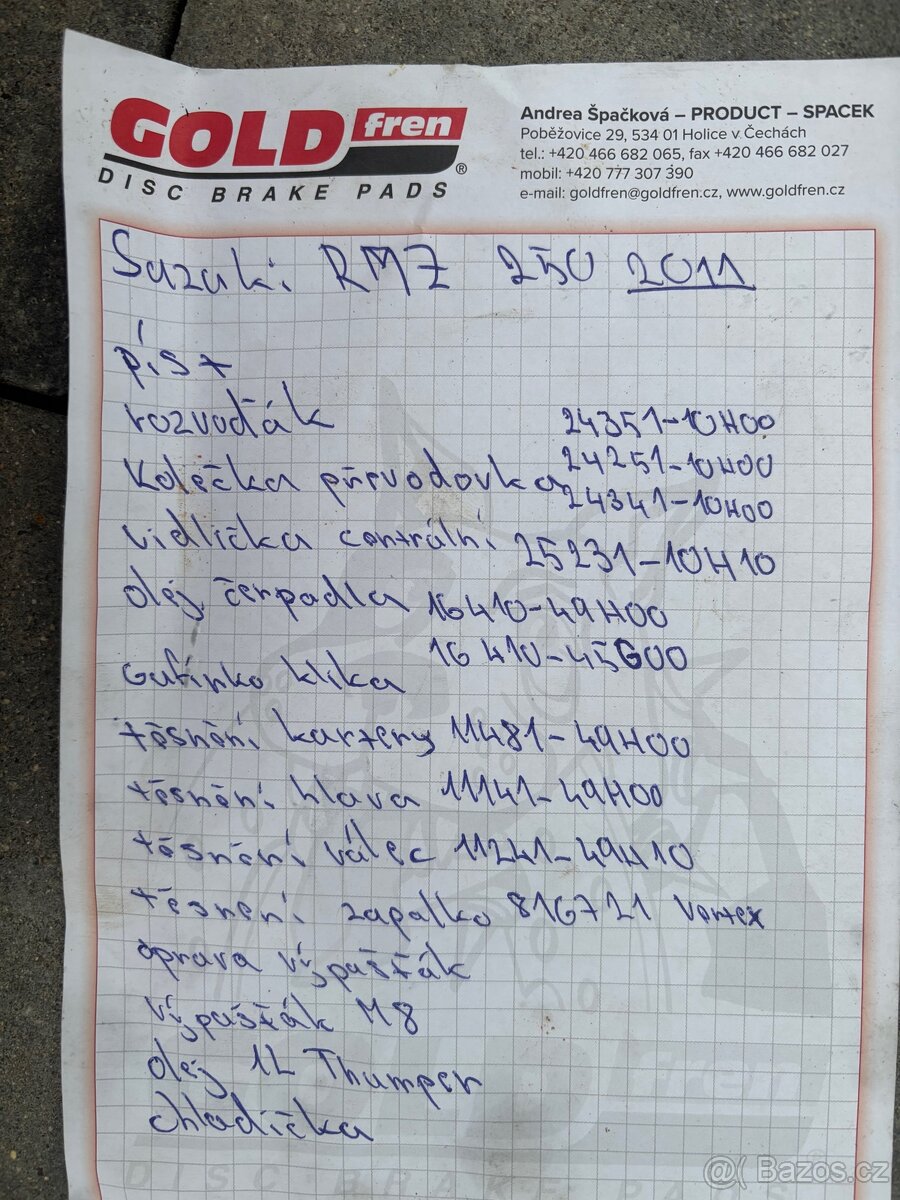 GOLD fren®
DISC BRAKE PADS
Andrea Špačková – PRODUCT – SPACEK
Poběžovice 29, 534 01 Holice v Čechách
tel.: +420 466 682 065, fax +420 466 682 027
mobil: +420 777 307 390
e-mail: goldfren@goldfren.cz, www.goldfren.cz
Suzuki RMZ 250 2011
píst
rozvoďák 24351-10H00
Kolečka převodovka 24251-10H00
24341-10H00
vidlička centrální 25231-10H10
olej čerpadla 16410-49H00
16410-45G00
Gufírko klika
těsnění kartery 11481-49H00
těsnění hlava 11141-49H00
těsnění válec 11241-49H10
těsnění zapalko 816721 Vortex
oprava výpašťák
výpašťák M8
olej 1L Thumper
chladíčka
fren
DISC BRAKE PA
@( Bazos.cz